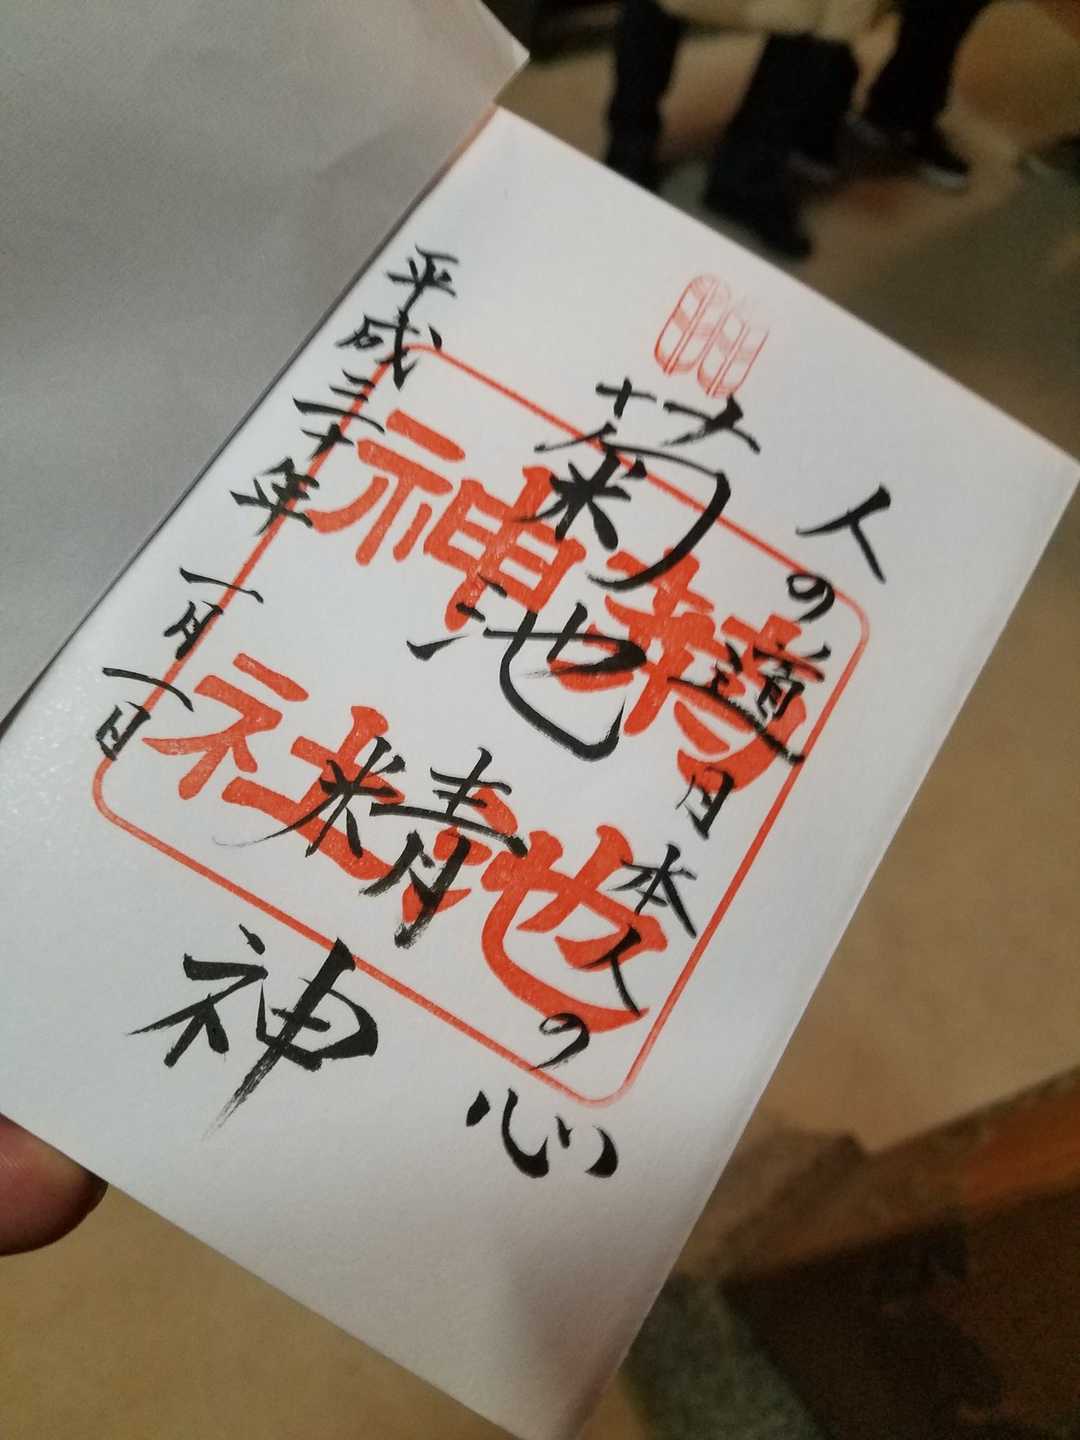 人の道日本人の心
菊池精神
平成三十年一月一日
池
神社